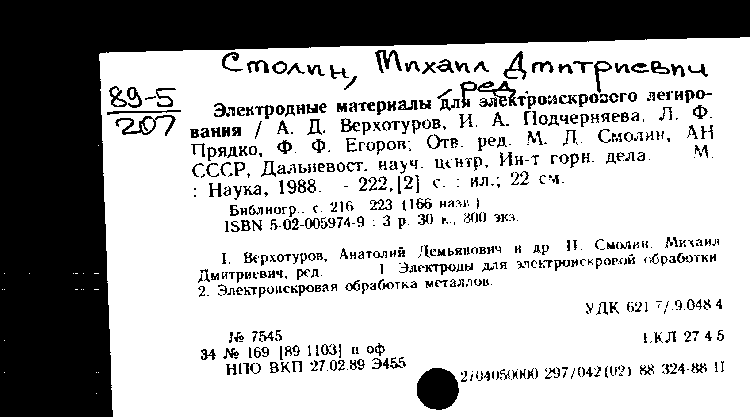 Смолин, Михаил Дмитриевич
ред.
89-5
207
Электродные материалы для электроискрового легиро-
вания / А. Д. Верхотуров, И. А. Подчерняева, Л. Ф.
Прядко, Ф. Ф. Егоров; Отв. ред. М. Д. Смолин, АН
СССР, Дальневост. науч. центр, Ин-т горн. дела. М.
: Наука, 1988. - 222,[2] с. : ил.; 22 см.
Библиогр.. с. 216 223 (166 назв.)
ISBN 5-02-005974-9 : 3 р. 30 к., 800 экз.
1. Верхотуров, Анатолий Демьянович и др II. Смолин, Михаил
Дмитриевич, ред. 1 Электроды для электроискровой обработки
2. Электроискровая обработка металлов.
УДК 621 7/.9.048 4
№ 7545
34 № 169 [89 1103] п оф
ББК 27 4 5
НПО ВКП 27.02.89 Э455
2704050000 297/042(02) 88 324-88 II